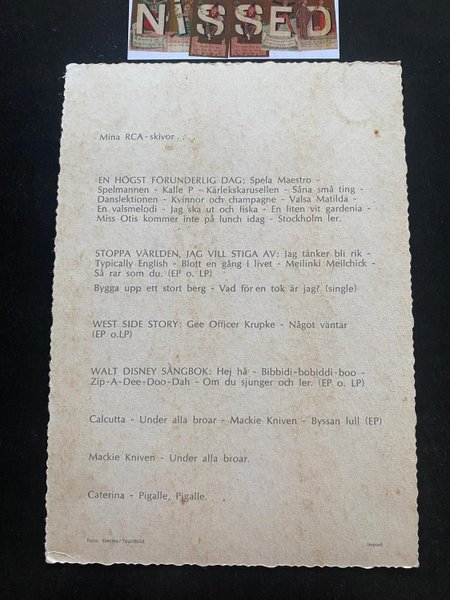 NISSED
Mina RCA-skivor . . . .
EN HÖGST FÖRUNDERLIG DAG: Spela Maestro -
Spelmannen - Kalle P - Kärlekskarusellen - Såna små ting -
Danslektionen - Kvinnor och champagne - Valsa Matilda -
En valsmelodi - Jag ska ut och fiska - En liten vit gardenia -
Miss Otis kommer inte på lunch idag - Stockholm ler.
STOPPA VÄRLDEN, JAG VILL STIGA AV: Jag tänker bli rik -
Typically English - Blott en gång i livet - Meilinki Meilchick -
Så rar som du. (EP o. LP)
Bygga upp ett stort berg - Vad för en tok är jag? (single)
WEST SIDE STORY: Gee Officer Krupke - Något väntar
(EP o.LP)
WALT DISNEY SÅNGBOK: Hej hå - Bibbidi-bobiddi-boo -
Zip-A-Dee-Doo-Dah - Om du sjunger och ler. (EP o. LP)
Calcutta - Under alla broar - Mackie Kniven - Byssan lull (EP)
Mackie Kniven - Under alla broar.
Caterina - Pigalle, Pigalle.
Foto: Electra/Teambild